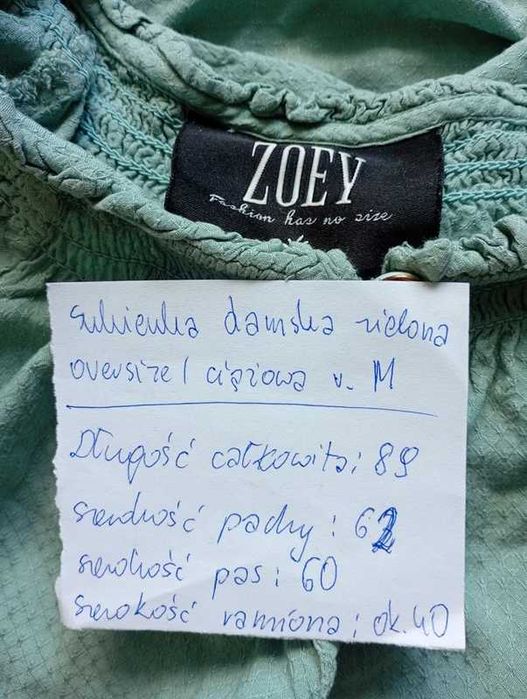 ZOEY
Fashion has no size
Sukienka damska zielona
oversize / ciążowa r. M
Długość całkowita: 89
szerokość pachy: 62
szerokość pas: 60
Szerokość ramiona: ok. 40